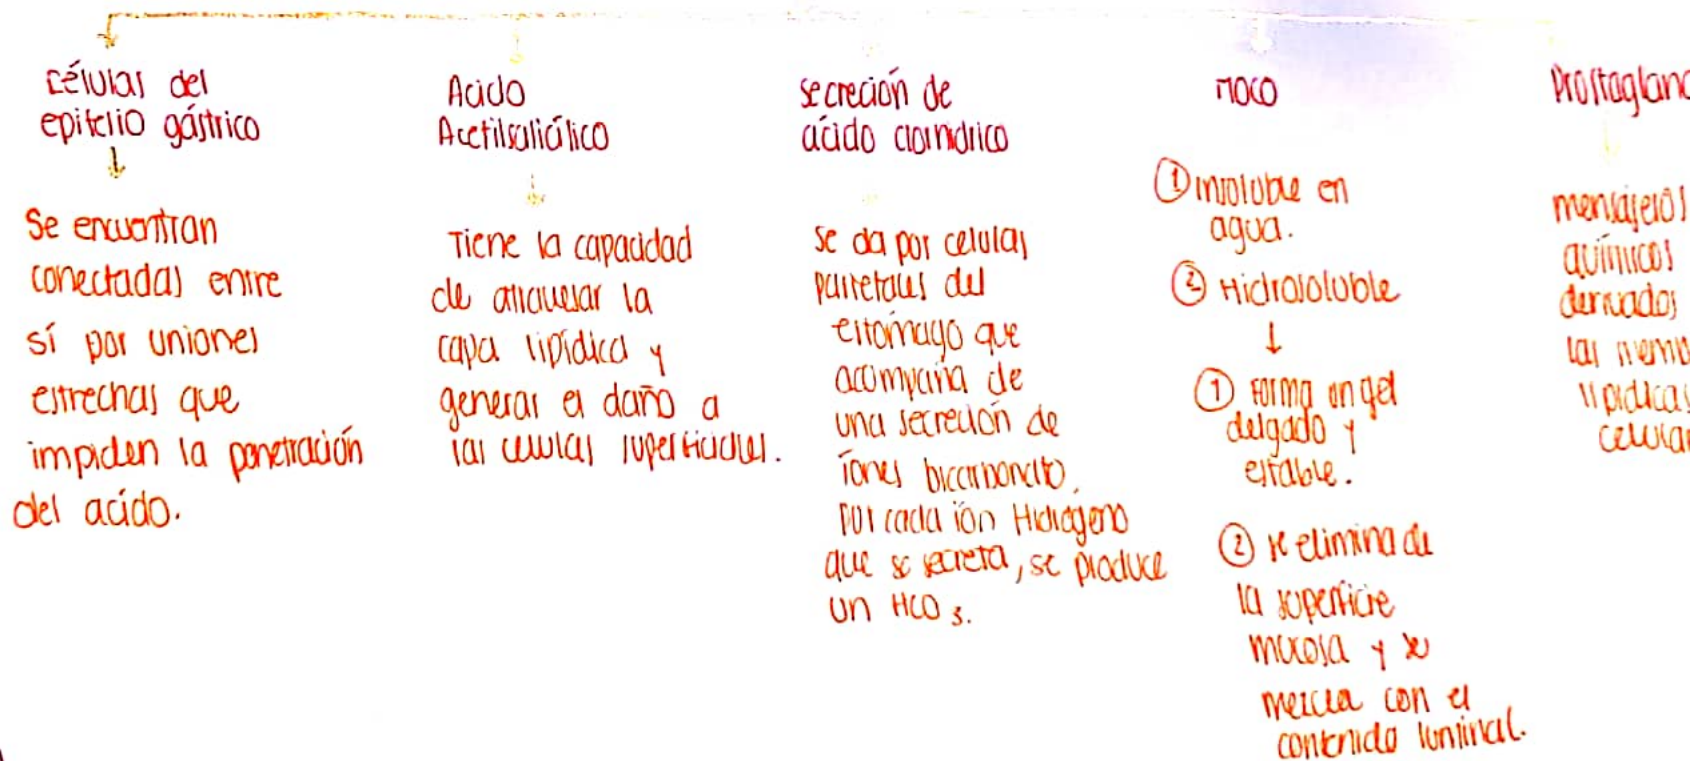 Células del
epitelio gástrico
Se encuentran
conectadas entre
sí por uniones
estrechas que
impiden la penetración
del acído.
Acido
Acetilsalicílico
Tiene la capacidad
de atravesar la
capa lipídica y
generar el daño a
las celulas superficiales.
secreción de
acído clorhidrico
se da por celulas
parietales del
estomago que
acompaña de
una secreción de
iones bicarbonato.
Por cada ión Hidrógeno
que se secreta, se produce
un HCO3.
Moco
① insoluble en
agua.
② Hidrosoluble
① Forma un gel
delgado y
estable.
② se elimina de
la superficie
mucosa y se
mezcla con el
contenido luminal.
Prostagland
mensajeros
químicos
derivados
las memb
lipídicas
celular